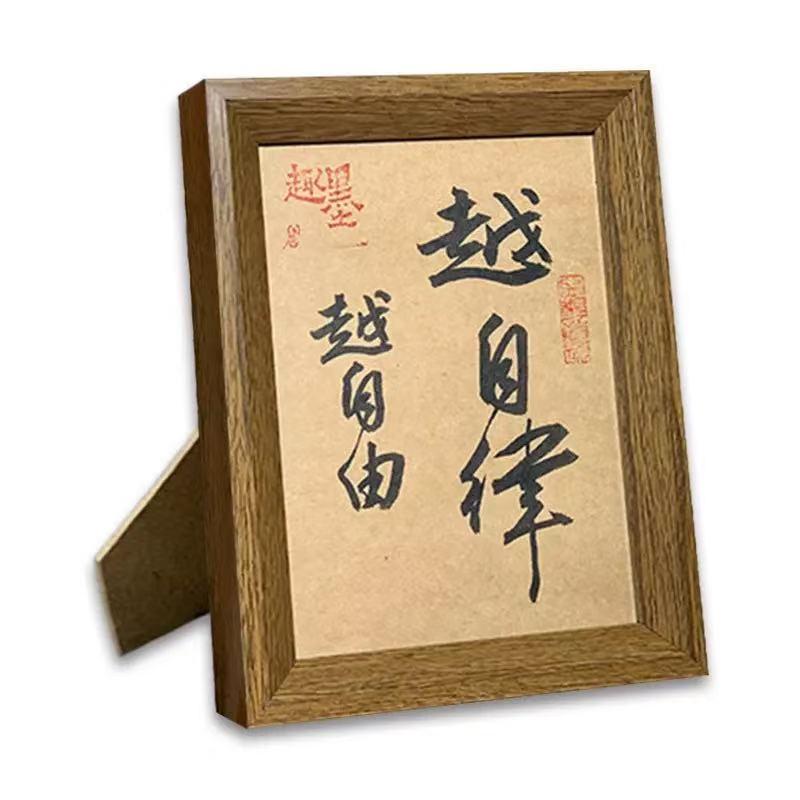 越自律
越自由
墨趣